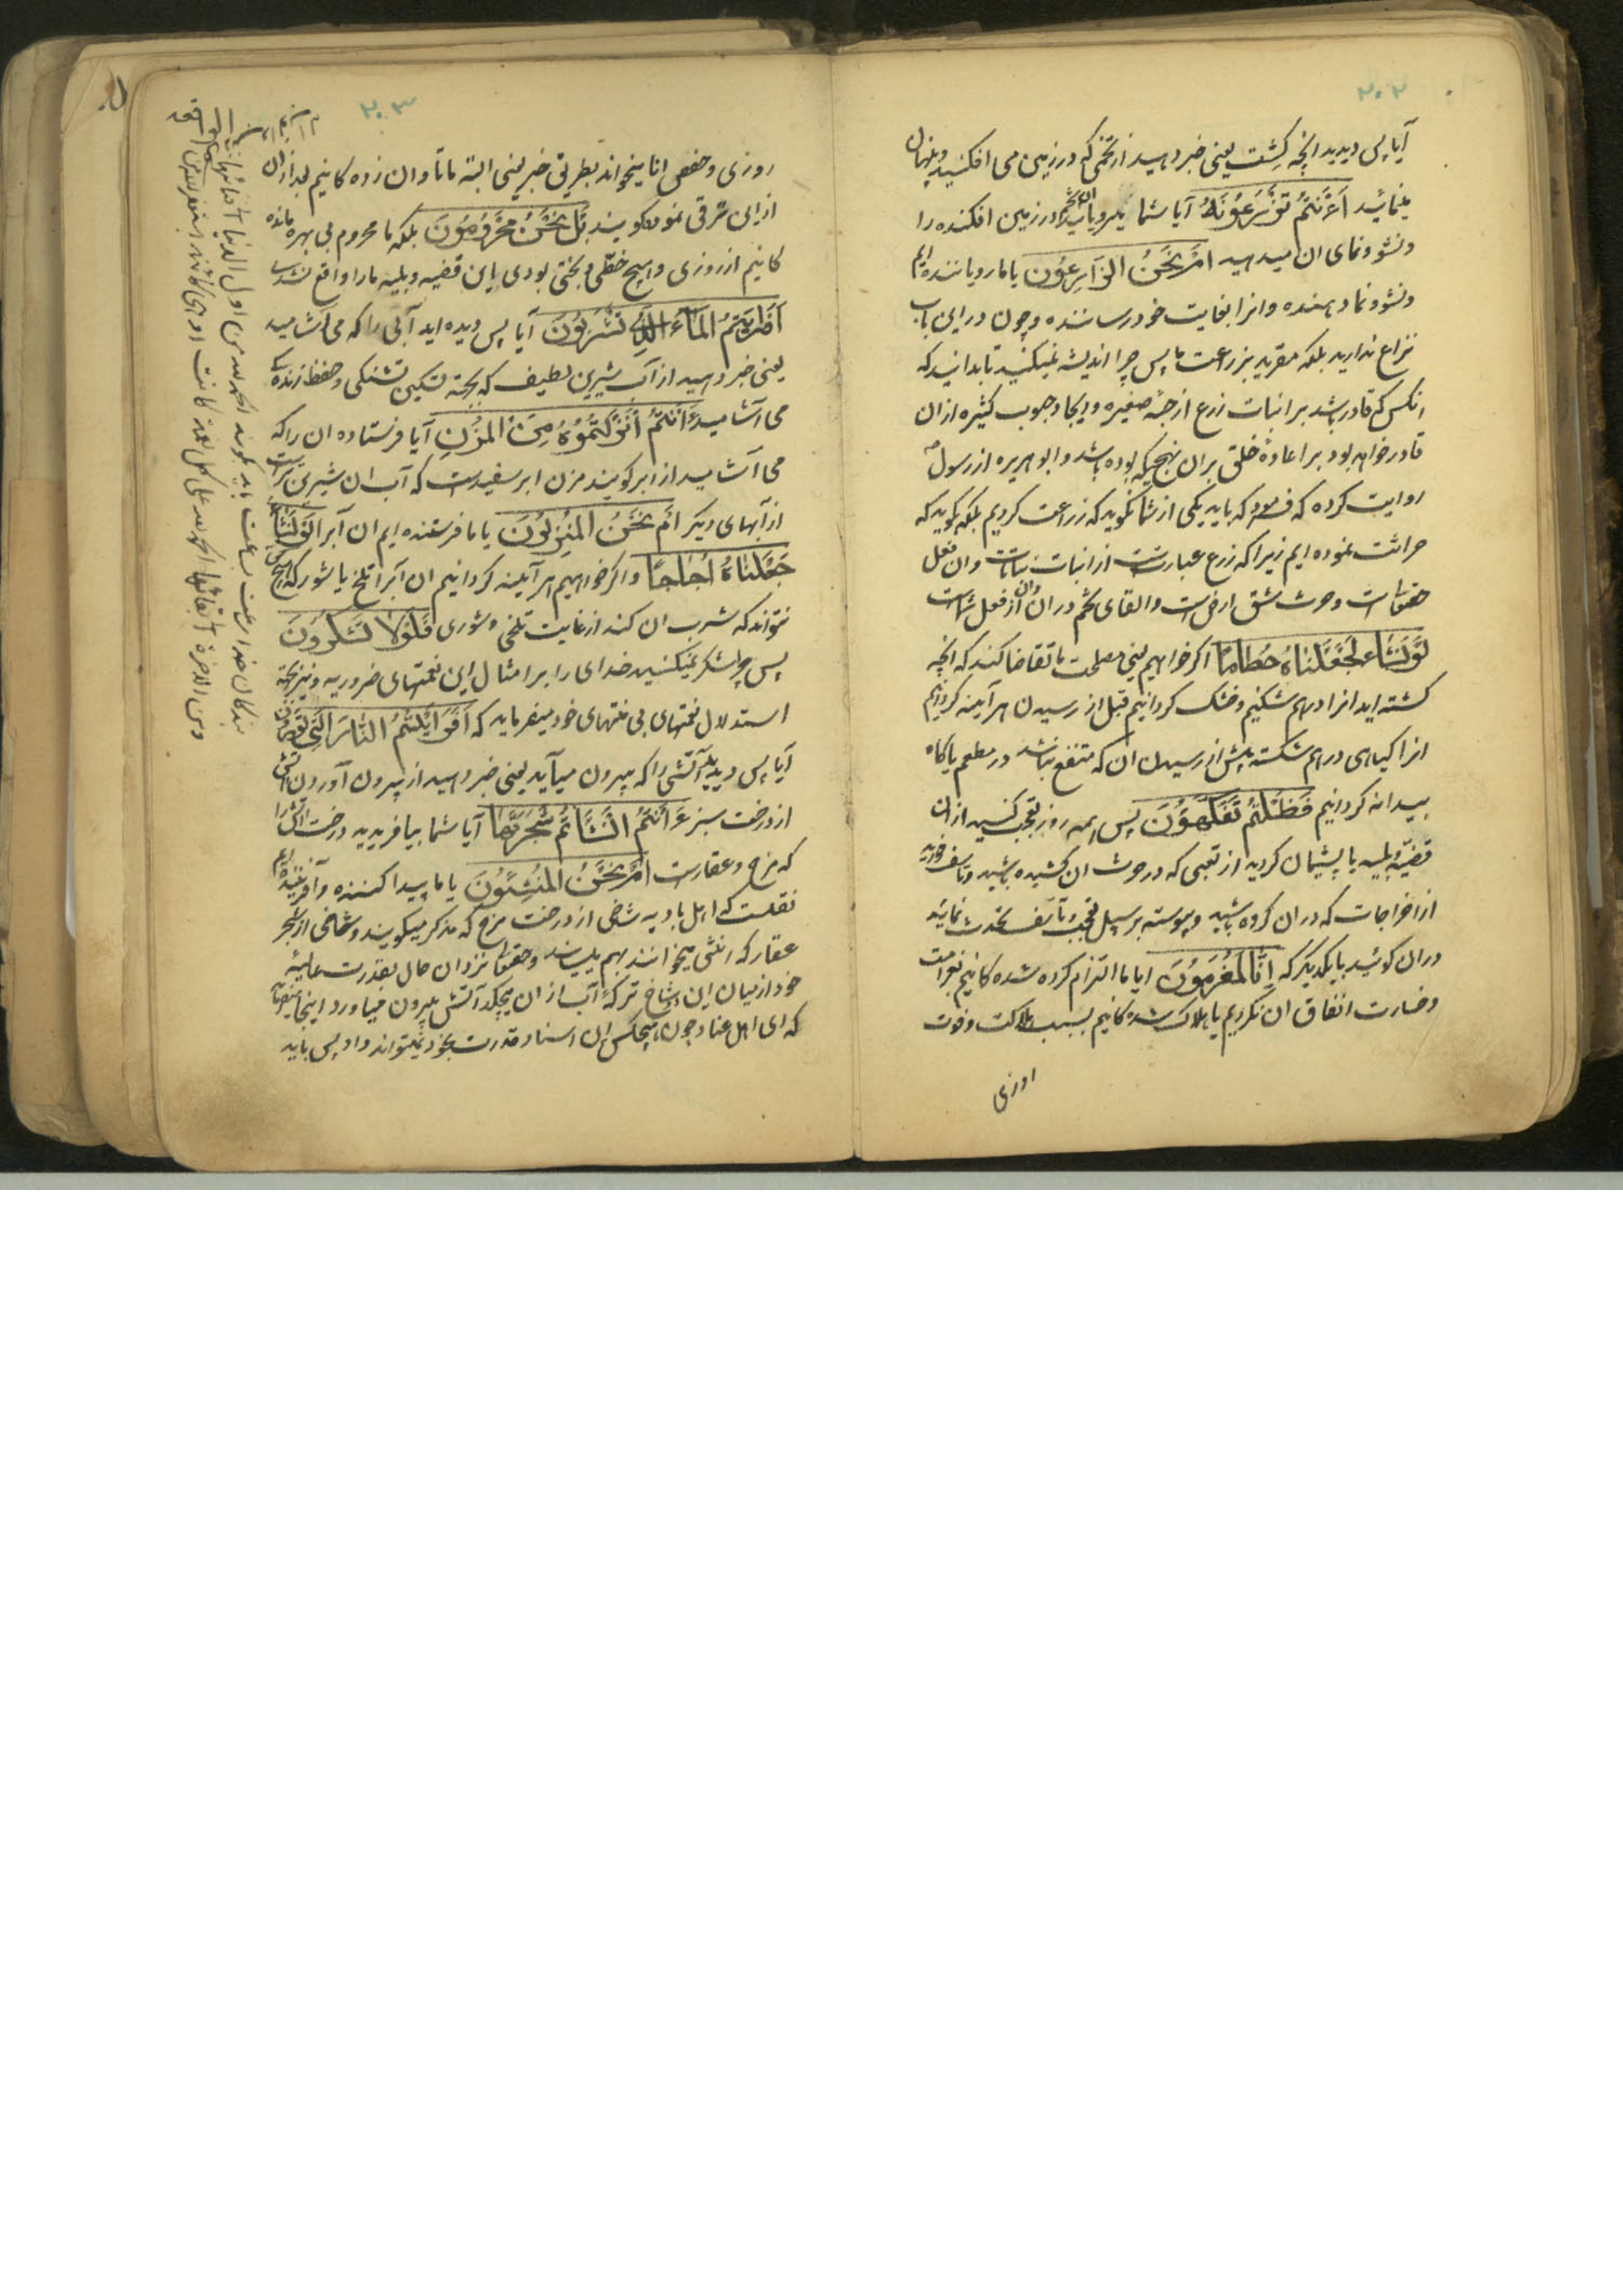 ۲۰۲
آیا پس دیدید انچه کشت یعنی خبر دهید از تخمی که در زمین می افکنید و پنهان
مینمائید اَءَنتُم تَزرَعُونَهُ آیا شما میرویانید ان تخم در زمین افکنده را
و نشو و نمای ان میدهید اَم نَحنُ الزّارِعُونَ یا ما رویاننده ایم
و نشو و نما دهنده و انرا بغایت خود رساننده و چون در این باب
نزاع ندارید بلکه مقرید بزراعت ما پس چرا اندیشه نمیکنید تا بدانید که
انکس که قادر باشد بر انبات زرع از حبّه صغیره و ایجاد حبوب کثیره از ان
قادر خواهد بود بر اعادهٔ خلق بر ان نهج که بوده باشد و ابو هریره از رسول ص
روایت کرده که فرمود که باید یکی از شما نگوید که زراعت کردیم بلکه بگوید که
حراثت نموده ایم زیرا که زرع عبارتست از انبات نباتات و ان فعل
حقتعالی است و حرث شق ارض است و القای تخم در ان و ان از فعل شماست
لَو نَشاءُ لَجَعَلناهُ حُطاماً اکر خواهیم یعنی مصلحت ما تقاضا کند که انچه
کشته اید انرا درهم شکنیم و خشک کردانیم قبل از رسیدن هر آینه کردانیم
انرا کیاهی درهم شکسته پیش از رسیدن ان که منتفع نباشد در مطعم یا کاه
بیدانه کردانیم فَظَلتُم تَفَکَّهُونَ پس همه روز تعجب کنید از ان
قضیّه و بلیه یا پشیمان کردید از تعبی که در حرث ان کشیده باشید و تاسف خورید
از اخراجات که در ان کرده باشید و پیوسته بر سبیل تعجب و تاسف تحدث نمایند
در ان کوئید با یکدیکر که اِنّا لَمُغرَمُونَ ایا ما التزام کرده شده کانیم بغرامت
و خسارت انفاق ان نکردیم یا هلاک شده کانیم بسبب هلاکت و فوت
روزی
۲۰۳
روزی و حفص انا میخواند بطریق خبر یعنی البته ما تاوان زده کانیم بعد از ان
از این ترقی نموده کویند بَل نَحنُ مَحرُومُونَ بلکه ما محروم بی بهره مانده
کانیم از روزی و اهیچ حظّی و بختی بودی این قضیه و بلیه ما را واقع نشدی
اَفَرَاَیتُمُ الماءَ الَّذی تَشرَبُونَ آیا پس دیده اید آبی را که می آشامید
یعنی خبر دهید از آب شیرین لطیف که بجهة تسکین تشنکی و حفظ زنده کی
می آشامید ءَاَنتُم اَنزَلتُمُوهُ مِنَ المُزنِ آیا فرستاده ان را که
می آشامید از ابر کویند مزن ابر سفیدست که آب ان شیرین تر است
از آبهای دیکر اَم نَحنُ المُنزِلُونَ یا ما فرستنده ایم ان آبرا لَو نَشاءُ
جَعَلناهُ اُجاجاً و اکر خواهیم هر آینه کردانیم ان آبرا تلخ یا شور که هیچکس
نتواند که شرب ان کند از غایت تلخی و شوری فَلَولا تَشکُرُونَ
پس چرا شکر نمیکنید خدای را بر امثال این نعمتهای ضروریه و نیز بجهة
استدلال نعمتهای بی منتهای خود میفرماید که اَفَرَاَیتُمُ النّارَ الَّتی تُورُونَ
آیا پس دیدید آتشی را که بیرون میآید یعنی خبر دهید از بیرون آوردن آتش
از درخت سبز ءَاَنتُم اَنشَأتُم شَجَرَتَها آیا شما بیافریدید درخت آتش را
که مرخ و عقارست اَم نَحنُ المُنشِئُونَ یا ما پیدا کننده و آفریننده ایم
نقلست که اهل بادیه شاخی از درخت مرخ که مذکر میکویند و شاخی از شجر
عقار که انثی میخوانند بهم میسایند و حقتعالی نزد ان حال بقدرت عالیه
خود از میان این دو شاخ تر که آب از ان میچکد آتش بیرون میاورد اینجا میفرماید
که ای اهل عناد چون هیچکس ان اسناد قدرت بخود نمیتواند داد پس باید